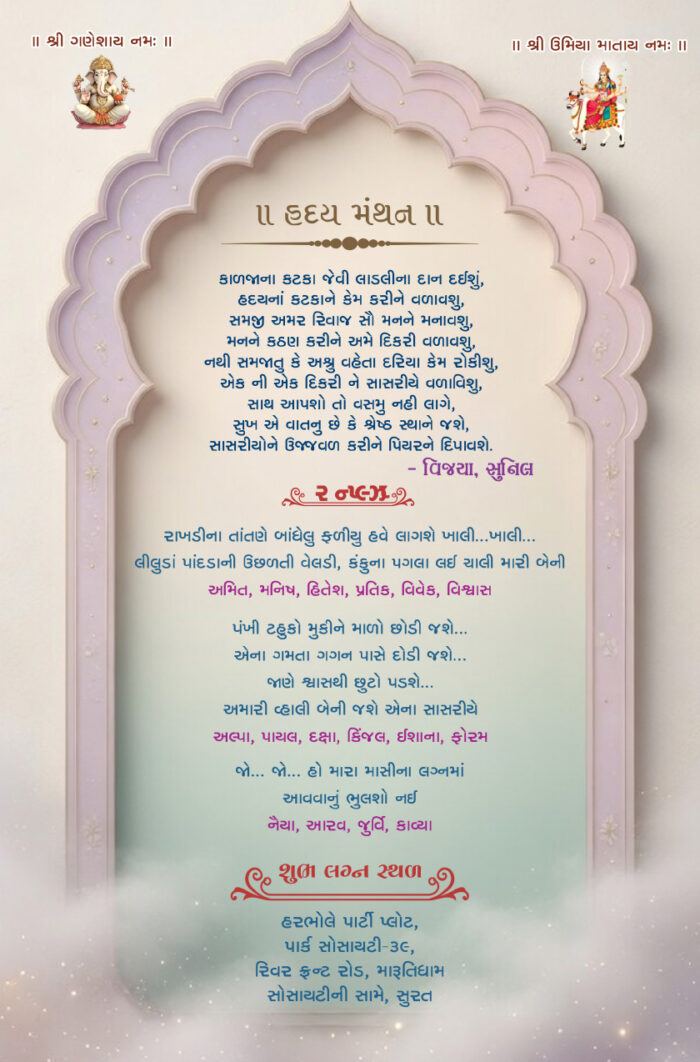 ॥ શ્રી ગણેશાય નમઃ ॥
॥ શ્રી ઉમિયા માતાય નમઃ ॥
॥ હૃદય મંથન ॥
કાળજાના કટકા જેવી લાડલીના દાન દઈશું,
હૃદયનાં કટકાને કેમ કરીને વળાવશુ,
સમજી અમર રિવાજ સૌ મનને મનાવશુ,
મનને કઠણ કરીને અમે દિકરી વળાવશુ,
નથી સમજાતુ કે અશ્રુ વહેતા દરિયા કેમ રોકીશુ,
એક ની એક દિકરી ને સાસરીયે વળાવિશુ,
સાથ આપશો તો વસમુ નહી લાગે,
સુખ એ વાતનુ છે કે શ્રેષ્ઠ સ્થાને જશે,
સાસરીયોને ઉજ્જવળ કરીને પિયરને દિપાવશે.
- વિજયા, સુનિલ
રાખડીના તાંતણે બાંધેલુ ફળીયુ હવે લાગશે ખાલી...ખાલી...
લીલુડાં પાંદડાની ઉછળતી વેલડી, કંકુના પગલા લઈ ચાલી મારી બેની
અમિત, મનિષ, હિતેશ, પ્રતિક, વિવેક, વિશ્વાસ
પંખી ટહુકો મુકીને માળો છોડી જશે...
એના ગમતા ગગન પાસે દોડી જશે...
જાણે શ્વાસથી છુટો પડશે...
અમારી વ્હાલી બેની જશે એના સાસરીયે
અલ્પા, પાયલ, દક્ષા, કિંજલ, ઈશાના, ફોરમ
જો... જો... હો મારા માસીના લગ્નમાં
આવવાનું ભુલશો નઈ
નૈયા, આરવ, જુર્વિ, કાવ્યા
શુભ લગ્ન સ્થળ
હરભોલે પાર્ટી પ્લોટ,
પાર્ક સોસાયટી-૩૯,
રિવર ફ્રન્ટ રોડ, મારૂતિધામ
સોસાયટીની સામે, સુરત